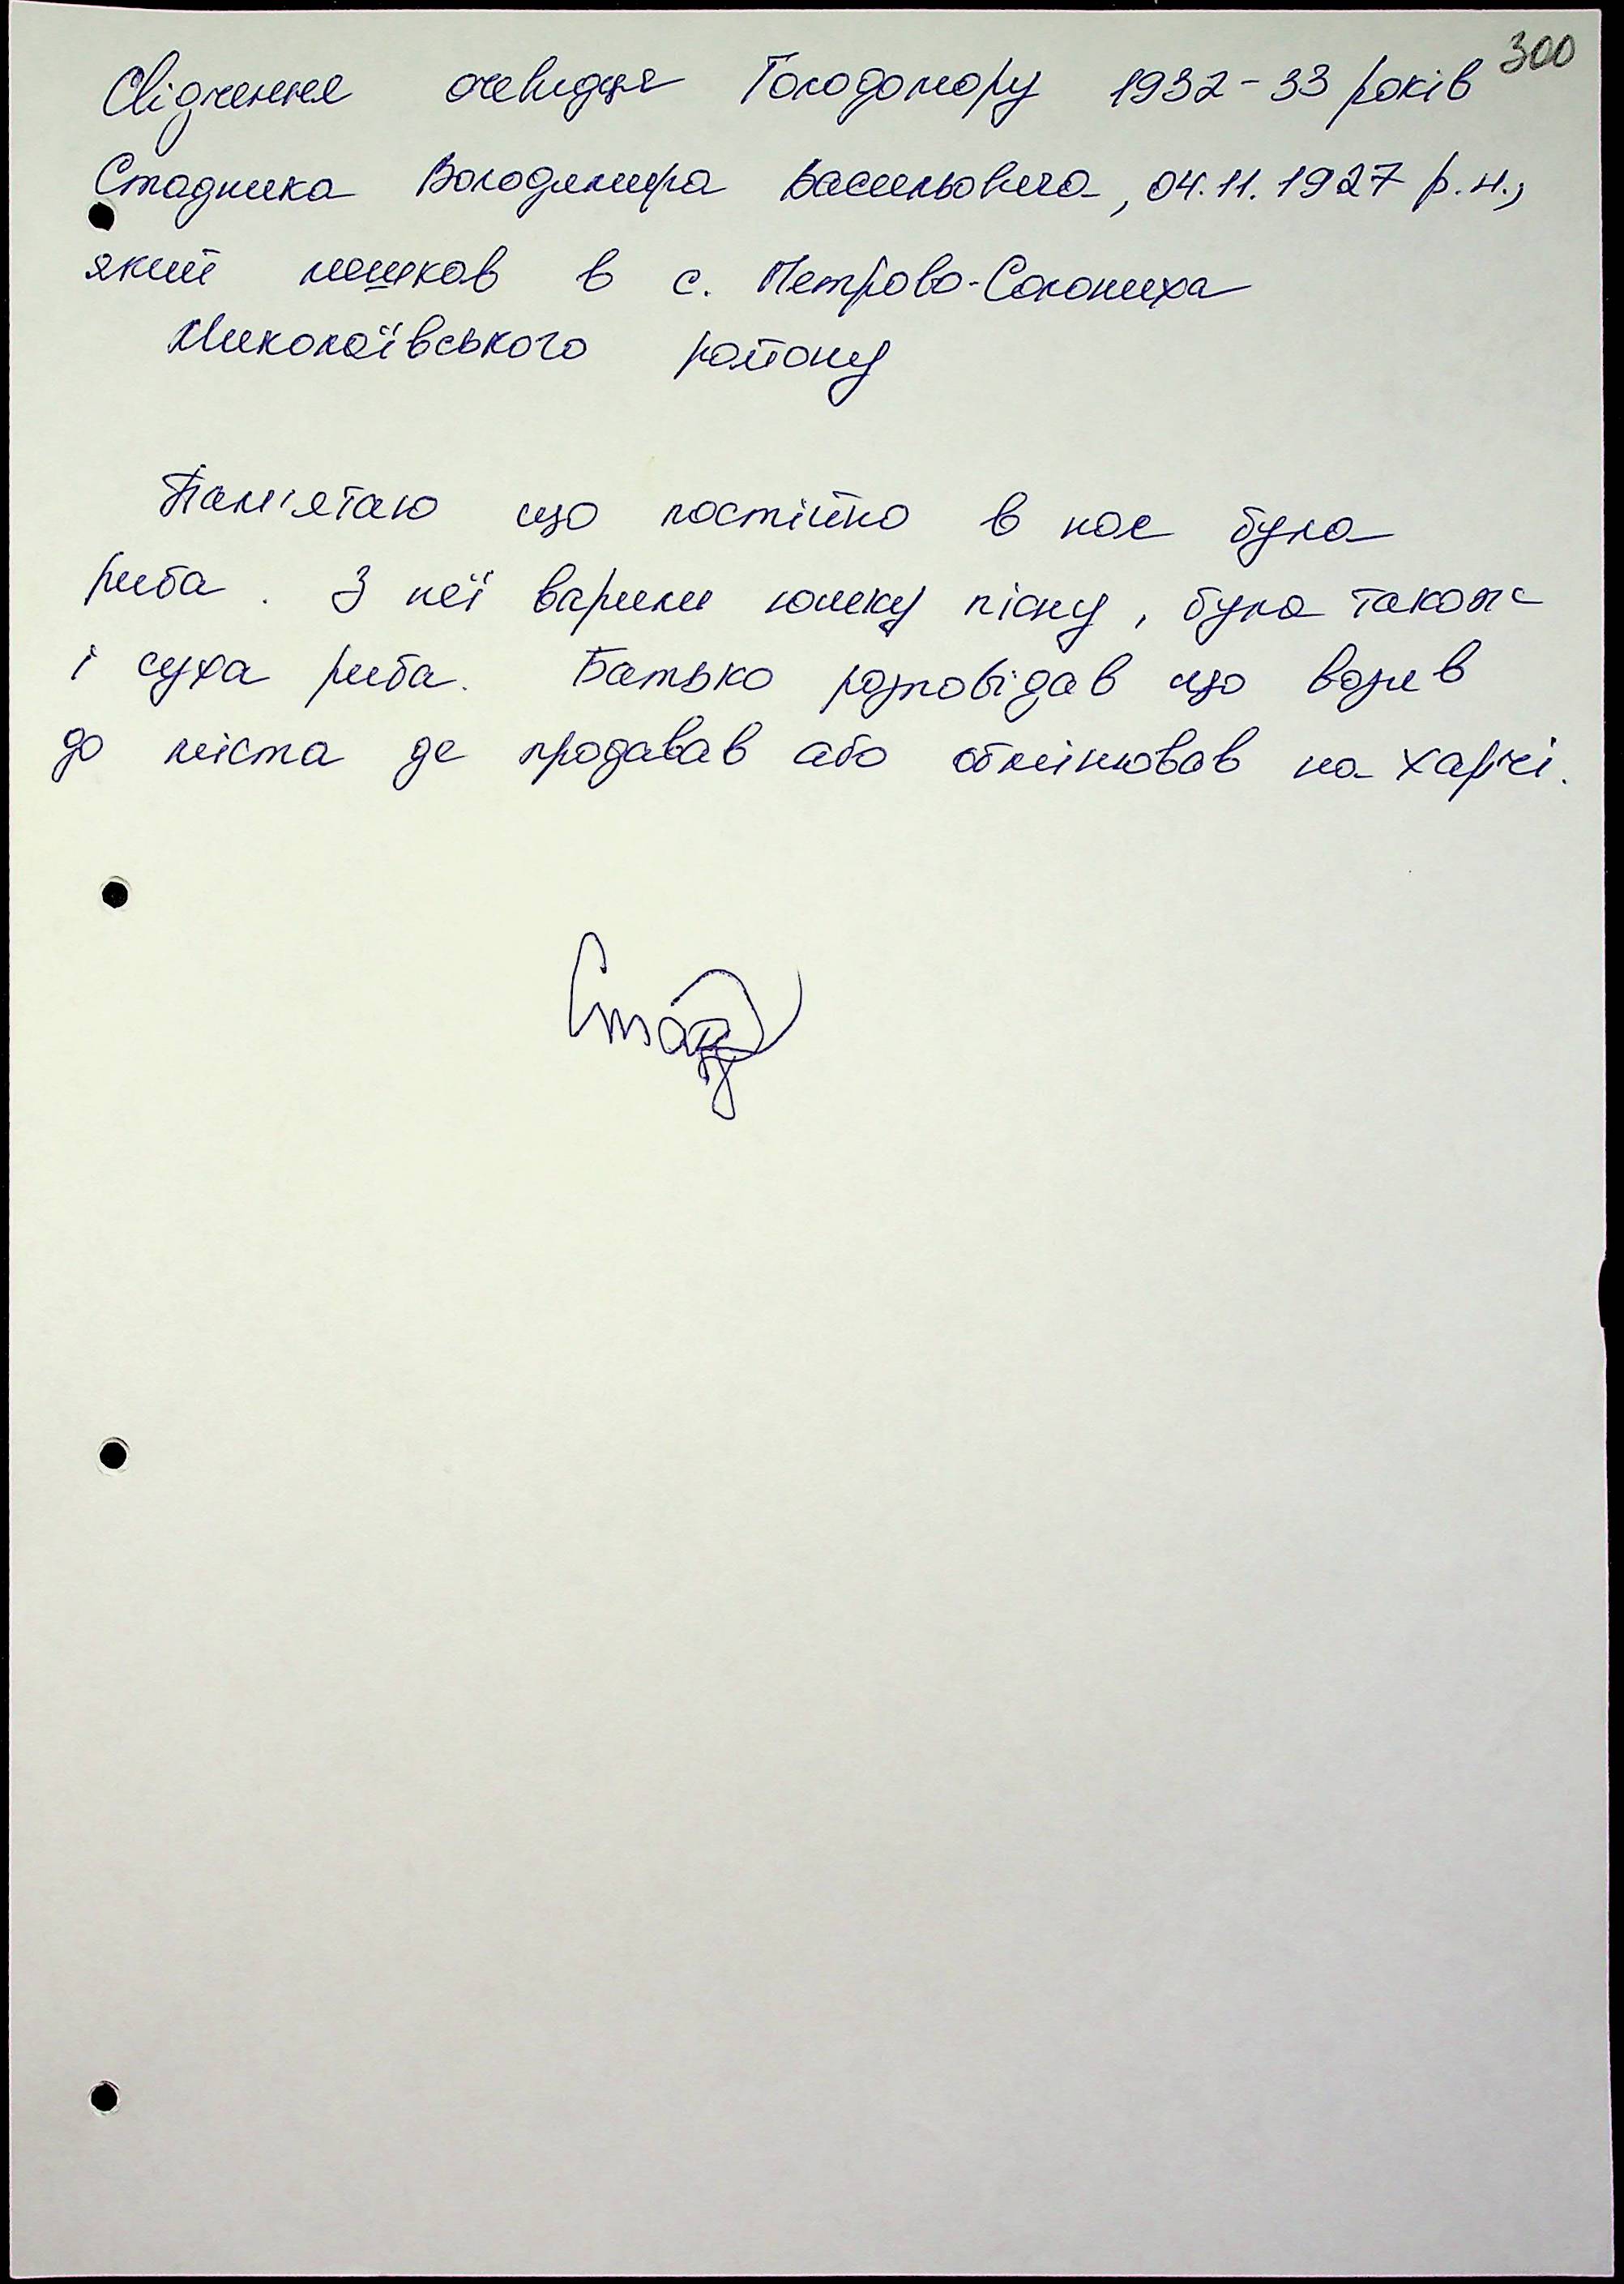 300
Свідчення очевидця Голодомору 1932-33 років
Стадника Володимира Васильовича, 04.11.1927 р.н.,
який мешкав в с. Петрово-Солониха
Миколаївського району
Пам'ятаю що постійно в нас була
риба. З неї варили юшку пісну, була також
і суха риба. Батько розповідав що возив
до міста де продавав або обмінював на харчі.